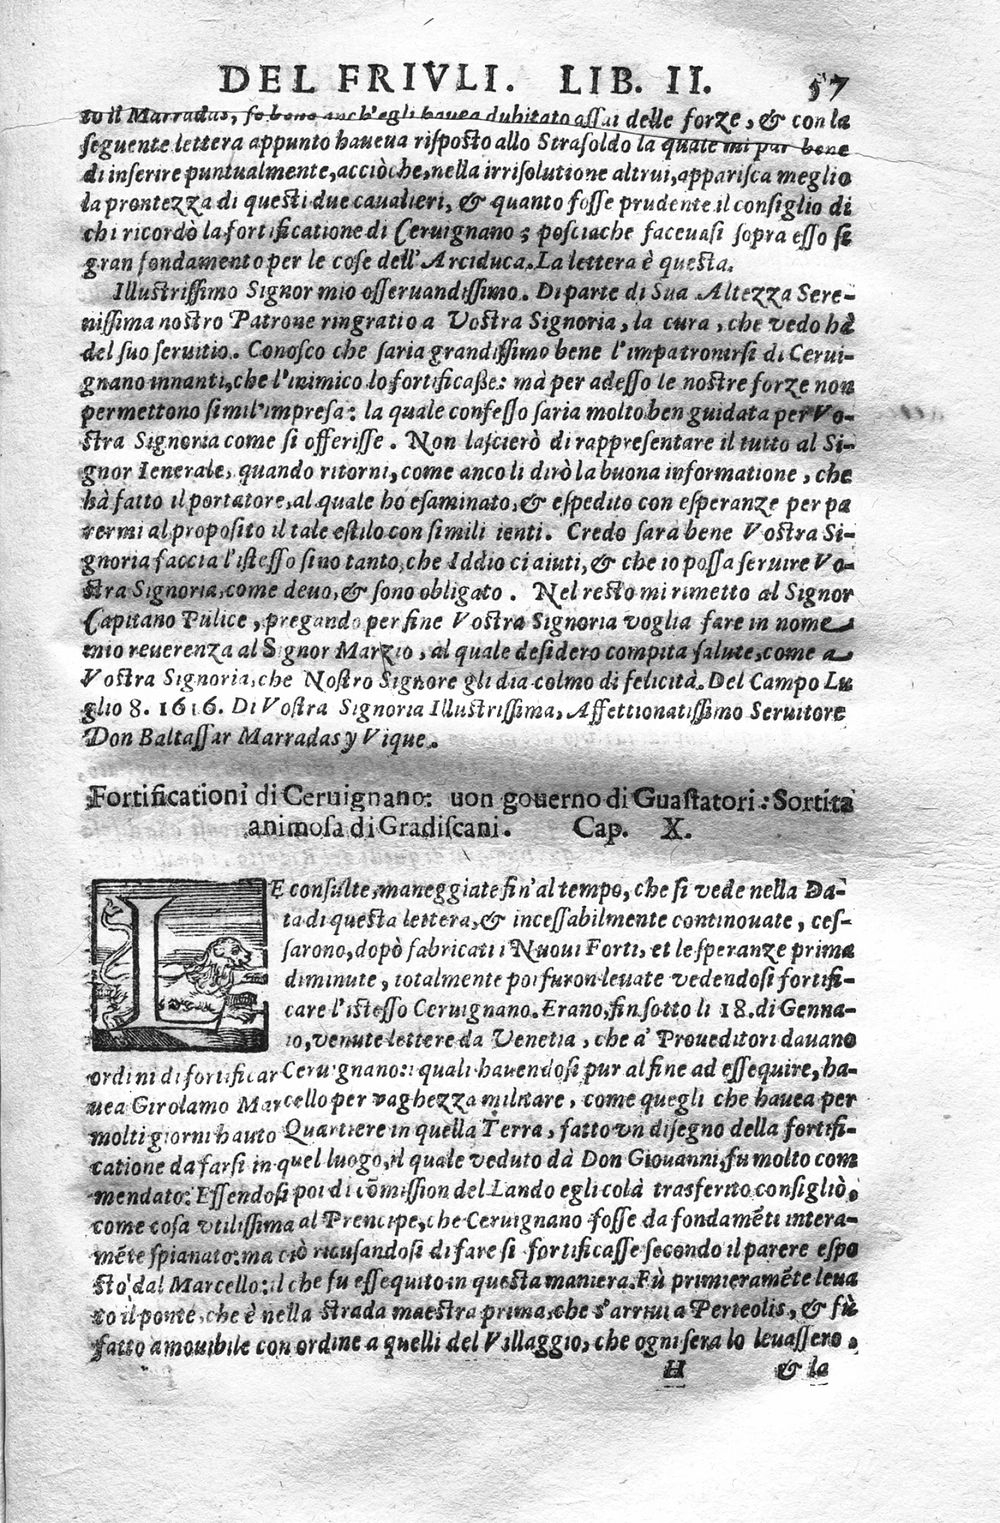 DEL FRIVLI. LIB. II. 57
to il Marradas, se bene anch'egli hauea dubitato assai delle forze, & con la
seguente lettera appunto haueua risposto allo Strasoldo la quale mi par bene
di inserire puntualmente, acciòche, nella irrisolutione altrui, apparisca meglio
la prontezza di questi due caualieri, & quanto fosse prudente il consiglio di
chi ricordò la fortificatione di Ceruignano; posciache faceuasi sopra esso sè
gran fondamento per le cose dell'Arciduca. La lettera è questa.
Illustrissimo Signor mio osseruandissimo. Di parte di Sua Altezza Sere-
nissima nostro Patrone ringratio a Vostra Signoria, la cura, che vedo hà
del suo seruitio. Conosco che saria grandissimo bene l'impatronirsi di Cerui-
gnano innanti, che l'inimico lo fortificaße: mà per adesso le nostre forze non
permettono simil'impresa: la quale confesso saria molto ben guidata per Vo-
stra Signoria come si offerisse. Non lascierò di rappresentare il tutto al Si-
gnor Ienerale, quando ritorni, come anco li dirò la buona informatione, che
hà fatto il portatore, al quale ho esaminato, & espedito con esperanze per pa
rermi al proposito il tale estilo con simili ienti. Credo sara bene Vostra Si-
gnoria faccia l'istesso sino tanto, che Iddio ci aiuti, & che io possa seruire Vo-
stra Signoria, come deuo, & sono obligato. Nel resto mi rimetto al Signor
Capitano Pulice, pregando per fine Vostra Signoria voglia fare in nome
mio reuerenza al Signor Marzio, al quale desidero compita salute, come a
Vostra Signoria, che Nostro Signore gli dia colmo di felicità. Del Campo Lu
glio 8. 1616. Di Vostra Signoria Illustrissima, Affettionatissimo Seruitore
Don Baltassar Marradas y Vique.
Fortificationi di Ceruignano: uon gouerno di Guastatori: Sortita
animosa di Gradiscani. Cap. X.
LE consulte, maneggiate fin'al tempo, che si vede nella Da-
ta di questa lettera, & incessabilmente continouate, ces-
sarono, dopò fabricati i Nuoui Forti, et le speranze prima
diminute, totalmente poi furon leuate vedendosi fortifi-
care l'istesso Ceruignano. Erano, fin sotto li 18. di Genna-
io, venute lettere da Venetia, che a' Proueditori dauano
ordini di fortificar Ceruignano: i quali hauendosi pur al fine ad essequire, ha-
uea Girolamo Marcello per vaghezza militare, come quegli che hauea per
molti giorni hauto Quartiere in quella Terra, fatto vn disegno della fortifi-
catione da farsi in quel luogo, il quale veduto dà Don Giouanni, fu molto com
mendato: Essendosi poi di cõmission del Lando egli colà trasferito consigliò,
come cosa vtilissima al Prencipe, che Ceruignano fosse da fondamẽti intera-
mẽte spianato: ma ciò ricusandosi di fare si fortificasse secondo il parere espo
sto dal Marcello: il che fu essequito in questa maniera. Fù primieramẽte leua
to il ponte, che è nella strada maestra prima, che s'arriui a Perteolis, & fù
fatto amouibile con ordine a quelli del Villaggio, che ogni sera lo leuassero,
H & la